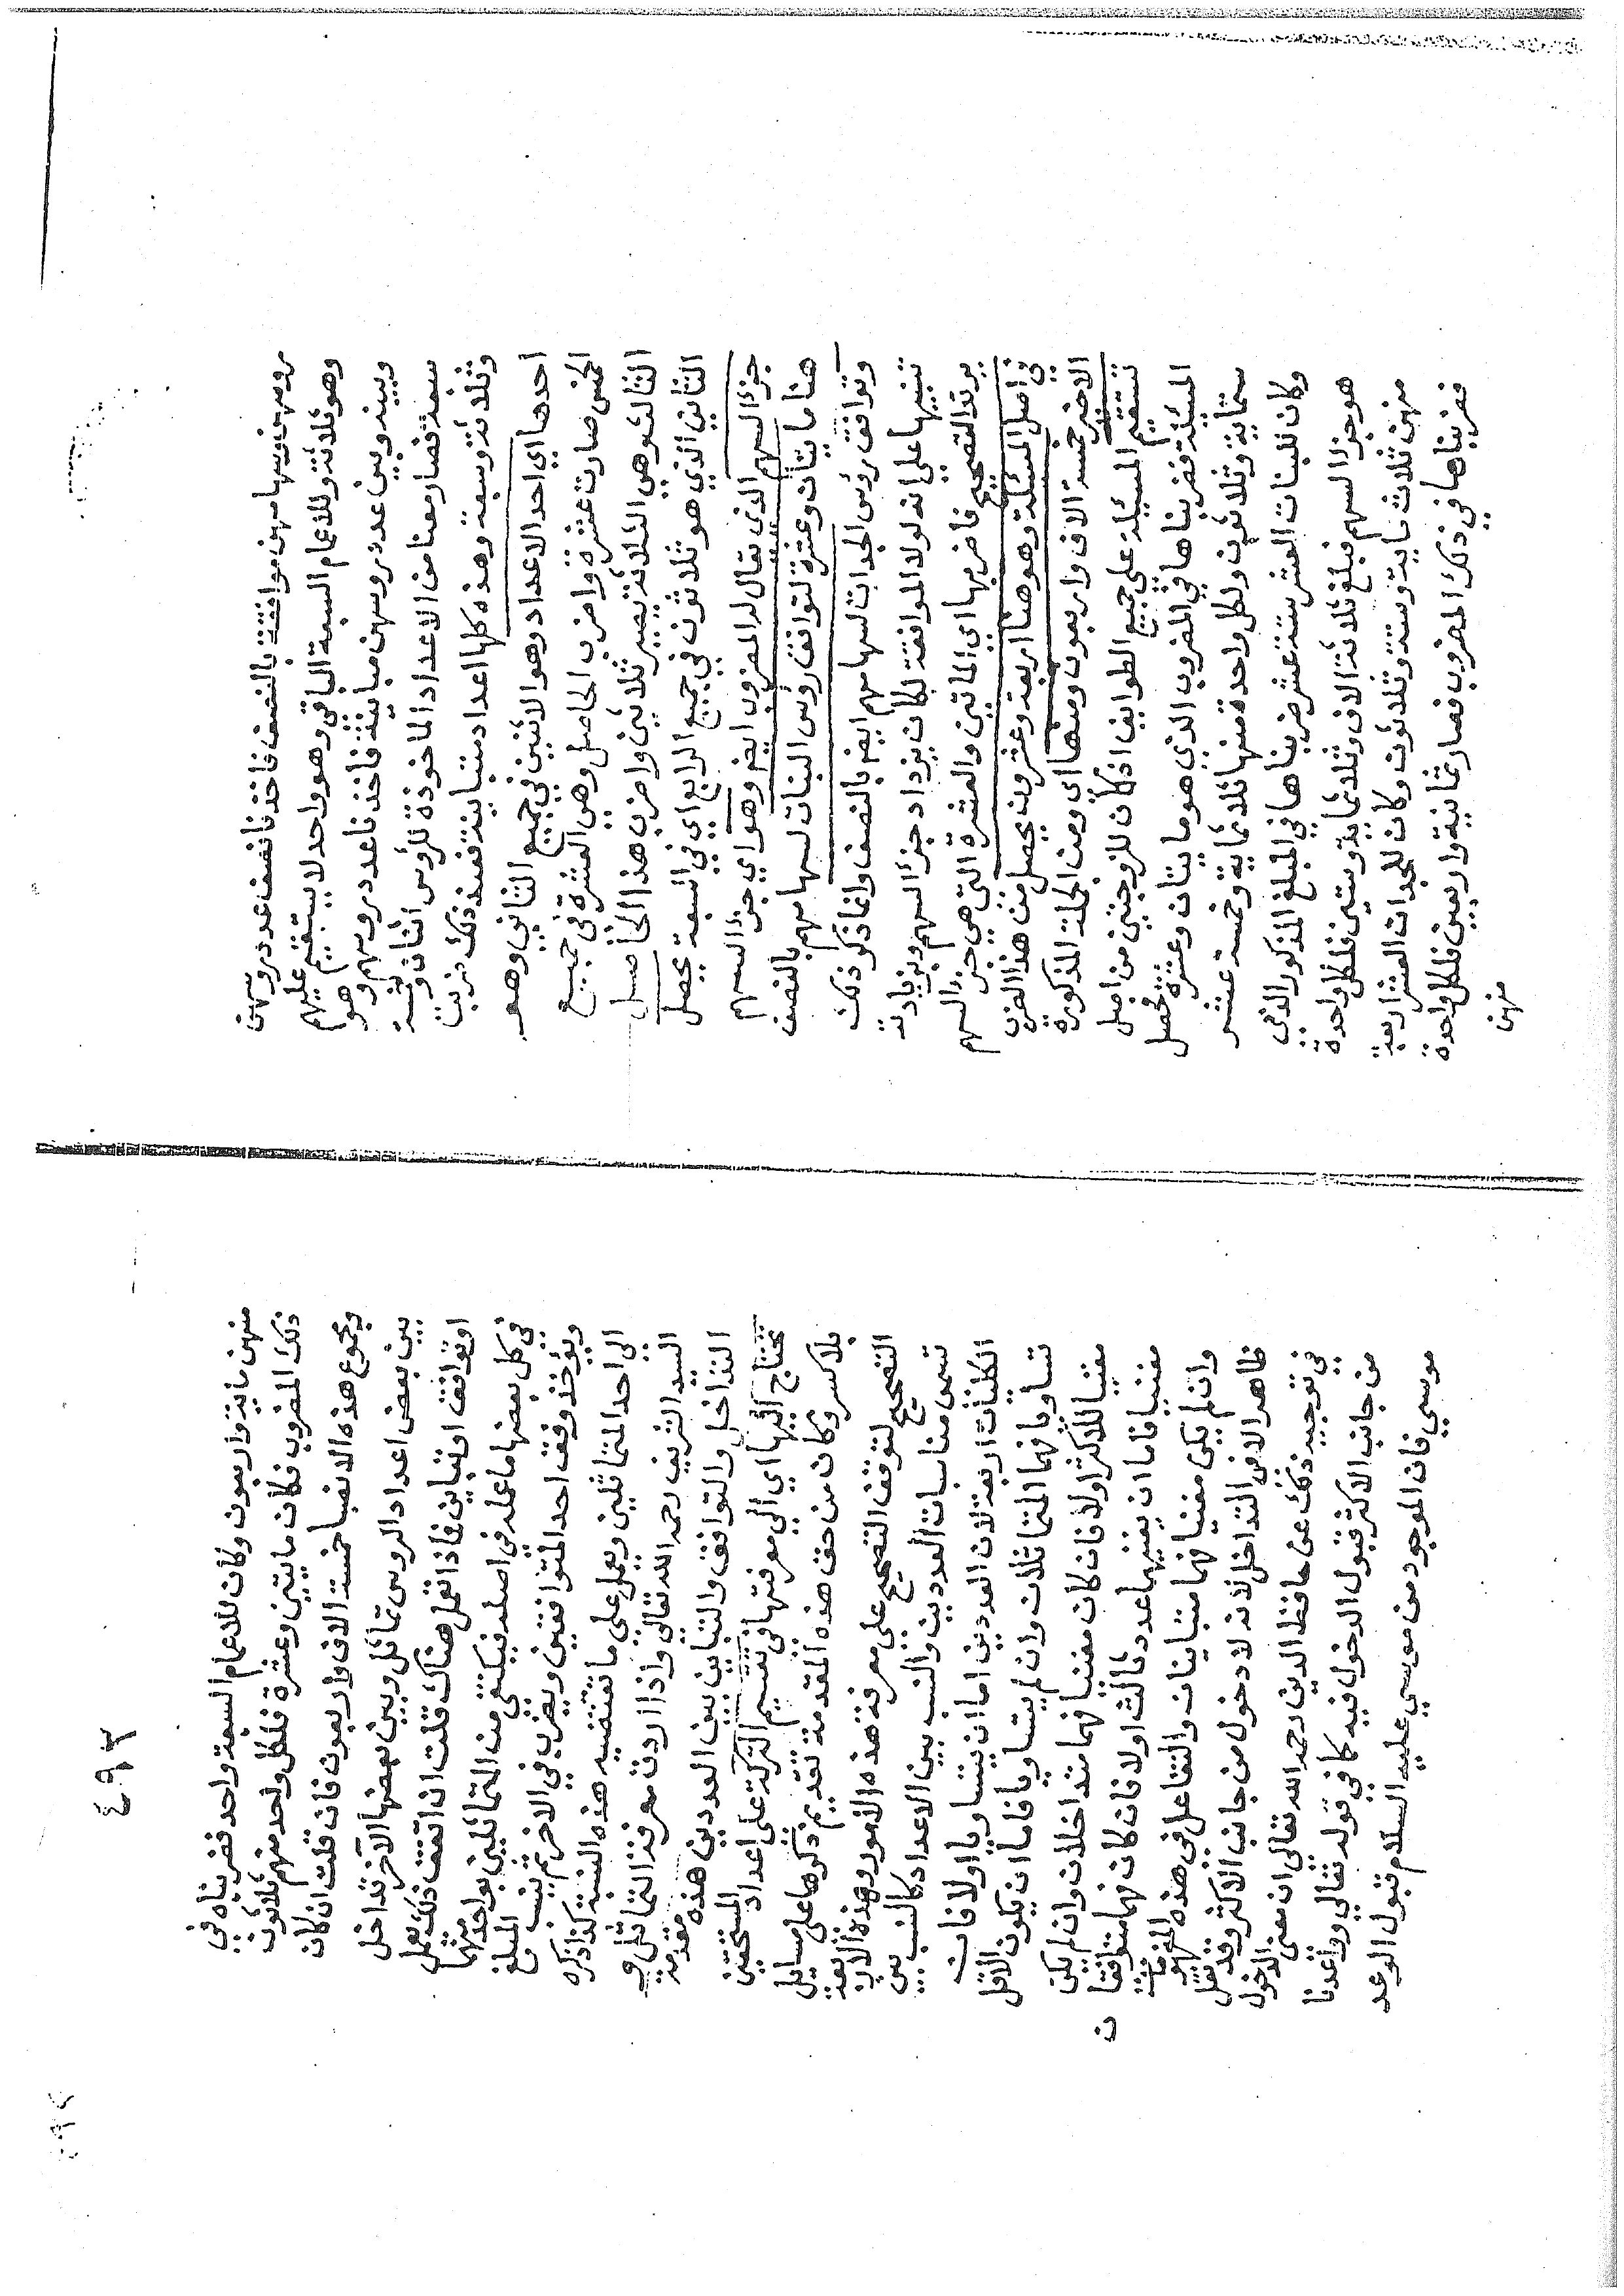 روسهن وسهامهن موافقة بالنصف فاخذنا نصف عدد روسهن
وهو ثلاثة وللاعمام السبعة الباقى وهو واحد لا يستقيم عليهم
وبينه وبين عدد روسهن مباينة فاخذنا عدد روسهم وهو
سبعة فصار معنا من الاعداد الماخوذة للرؤس اثنان وستة
وثلاثة وسبعة وهذه كلها اعداد متباينة فعند ذلك ضربت
احدها اي احد الاعداد وهو الاثنين في جميع الثاني وهو
الخمس صارت عشرة واضرب الحاصل وهي العشرة في جميع
الثالث وهي الثلاثة يصير ثلاثين واضرب هذا الحاصل
الثاني الذي هو ثلاثون في جميع الرابع اي في السبعة يحصل
جزء السهم الذي يقال له المضروب ايضا وهو اي جزء السهم
هنا مايتان وعشرة لتوافق روس البنات لسهامهم بالنصف
وتوافق رؤس الجدات لسهامهم ايضا بالنصف وانما ذكر ذلك
تنبيها على انه لولا الموافقة لكان يزداد جزء السهم وبزيادته
يزداد التصحيح فاضربها اي المائتين والعشرة التي هي جزء السهم
في اصل المسئلة وهو هنا اربعة وعشرون يحصل من هذا الضرب
الاخير خمسة الاف واربعون ومنها اي ومن الجملة المذكورة
تستقيم المسئلة على جميع الطوايف اذ كان للزوجتين من اصل
المسئلة فضربناها في المضروب الذي هو مايتان وعشرة تحصل
ستماية وثلاثون ولكل واحدة منها ثلاثماية وخمسة عشر
وكان للبنات العشر ستة عشر ضربناها في المبلغ المذكور الذي
هو جزء السهم فبلغ ثلاثة الاف وثلاثماية وستين فلكل واحدة
منهن ثلاث ماية وستة وثلاثون وكان للجدات الستة اربعة
فضربناها في ذلك المضروب فصار ثمانية واربعين فلكل واحدة
منهن
٤٩٣
منهن ماية واربعون وكان للاعمام السبعة واحد فضربناه في
ذلك المضروب فكان مايتين وعشرة فلكل واحد منهم ثلاثون
ومجموع هذه الانصبا خمسة الاف واربعون فان قلت ان كان
بين بعض اعداد الروس تماثل وبين بعضها الآخر تداخل
او توافق او تباين فماذا تعمل هناك قلت ان اتفق ذلك تعمل
في كل بعضها ما عمله في اصله فيكتفى من المتماثلين بواحد منهما
ويؤخذ وفق احد المتوافقين ويضرب في الاخر ثم ينسب المبلغ
الى احد المتماثلين ويعمل على ما تقتضيه هذه النسبة كذا ذكره
السيد الشريف رحمه الله تعالى واذا اردت معرفة التماثل و
التداخل والتوافق والتباين بين العددين هذه مقدمة
يحتاج اليها اي الى معرفتها في تقسيم التركة على اعداد المستحقين
بلا كسر وكان من حق هذه المقدمة تقديم ذكرها على مسايل
التصحيح لتوقف التصحيح على معرفة هذه الامور وهذه الاربعة
تسمى مناسبات العددين والنسب بين الاعداد كالنسب بين
الكليات اربعة لان العددين اما ان يتساويا اولا فان
تساويا فهما المتماثلان وان لم يتساويا فاما ان يكون الاقل
مفنيا للاكثر اولا فان كان مفنيا فهما متداخلان وان لم يكن
مفنيا فاما ان يفنيهما عدد ثالث اولا فان كان فهما متوافقان
وان لم يكن مفنيا فهما متباينان والتفاعل في هذه المفهومات
ظاهر الا في التداخل لانه لا دخول من جانب الاكثر وقد نقل
في توجيه ذلك عن حافظ الدين رحمه الله تعالى ان معنى الدخول
من جانب الاكثر قبول الدخول فيه كما في قوله تعالى وواعدنا
موسي فان الموجود من موسي عليه السلام قبول الوعد